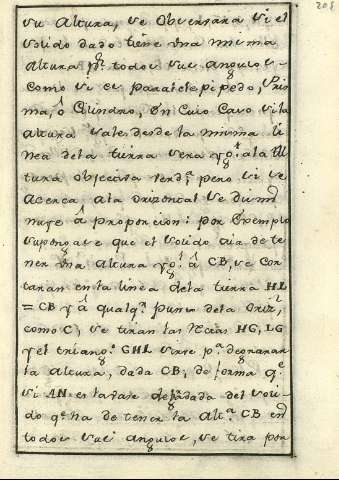 208
su Altura, se Observará si el
solido dado tiene una misma
Altura pr. todos sus angulos
como si es paralelepipedo, Pris
ma, ô Cilindro, en cuio caso si la
altura sale desde la misma li
nea dela tierra sera ygl. ala Al
tura Objectiva perda. pero si se
acerca ala orizontal se dismi
nuye â proporcion: por Exemplo
supongase que el solido aia de te
ner una Altura ygl. â CB, se cor
taran en la linea dela tierra HL
= CB y â qualqa. punto dela Orizl.
como C; se tiran las Rectas HG, LG
y el triango. GHL sirve pa. degradar
la Altura, dada CB; de forma qe.
si AN es la base degradada del soli
do qe. ha de tener la Alta. CB en
todos sus angulos, se tira por